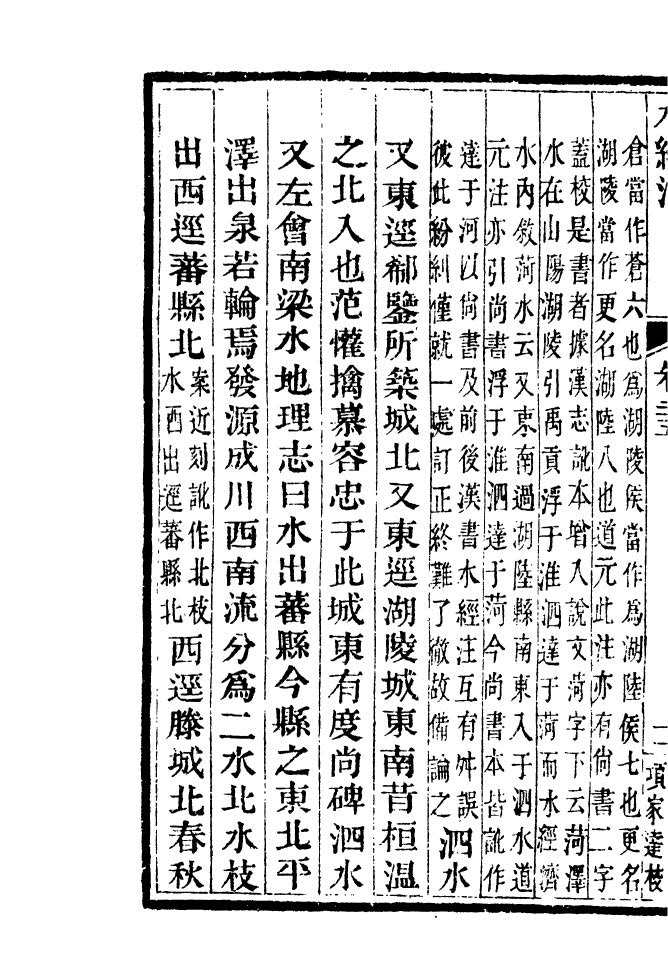 水經注 卷二十五 項家達校
倉當作蒼六也爲湖陵侯當作爲湖陸侯七也更名
湖陵當作更名湖陸八也道元此注亦有尙書二字
蓋校是書者據漢志訛本增入說文菏字下云菏澤
水在山陽湖陵引禹貢浮于淮泗達于菏而水經濟
水內敘菏水云又東南過湖陸縣南東入于泗水道
元注亦引尙書浮于淮泗達于菏今尙書本皆訛作
達于河以尙書及前後漢書水經注互有舛誤
彼此紛糾僅就一處訂正終難了徹故備論之
泗水
又東逕郗鑒所築城北又東逕湖陵城東南昔桓溫
之北入也范懽擒慕容忠于此城東有度尚碑泗水
又左會南梁水地理志曰水出蕃縣今縣之東北平
澤出泉若輪焉發源成川西南流分爲二水北水枝
出西逕蕃縣北
案近刻訛作北枝
水西出逕蕃縣北
西逕滕城北春秋